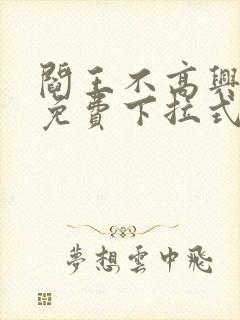 閻王不高興
免費下拉式
夢想雲中飛